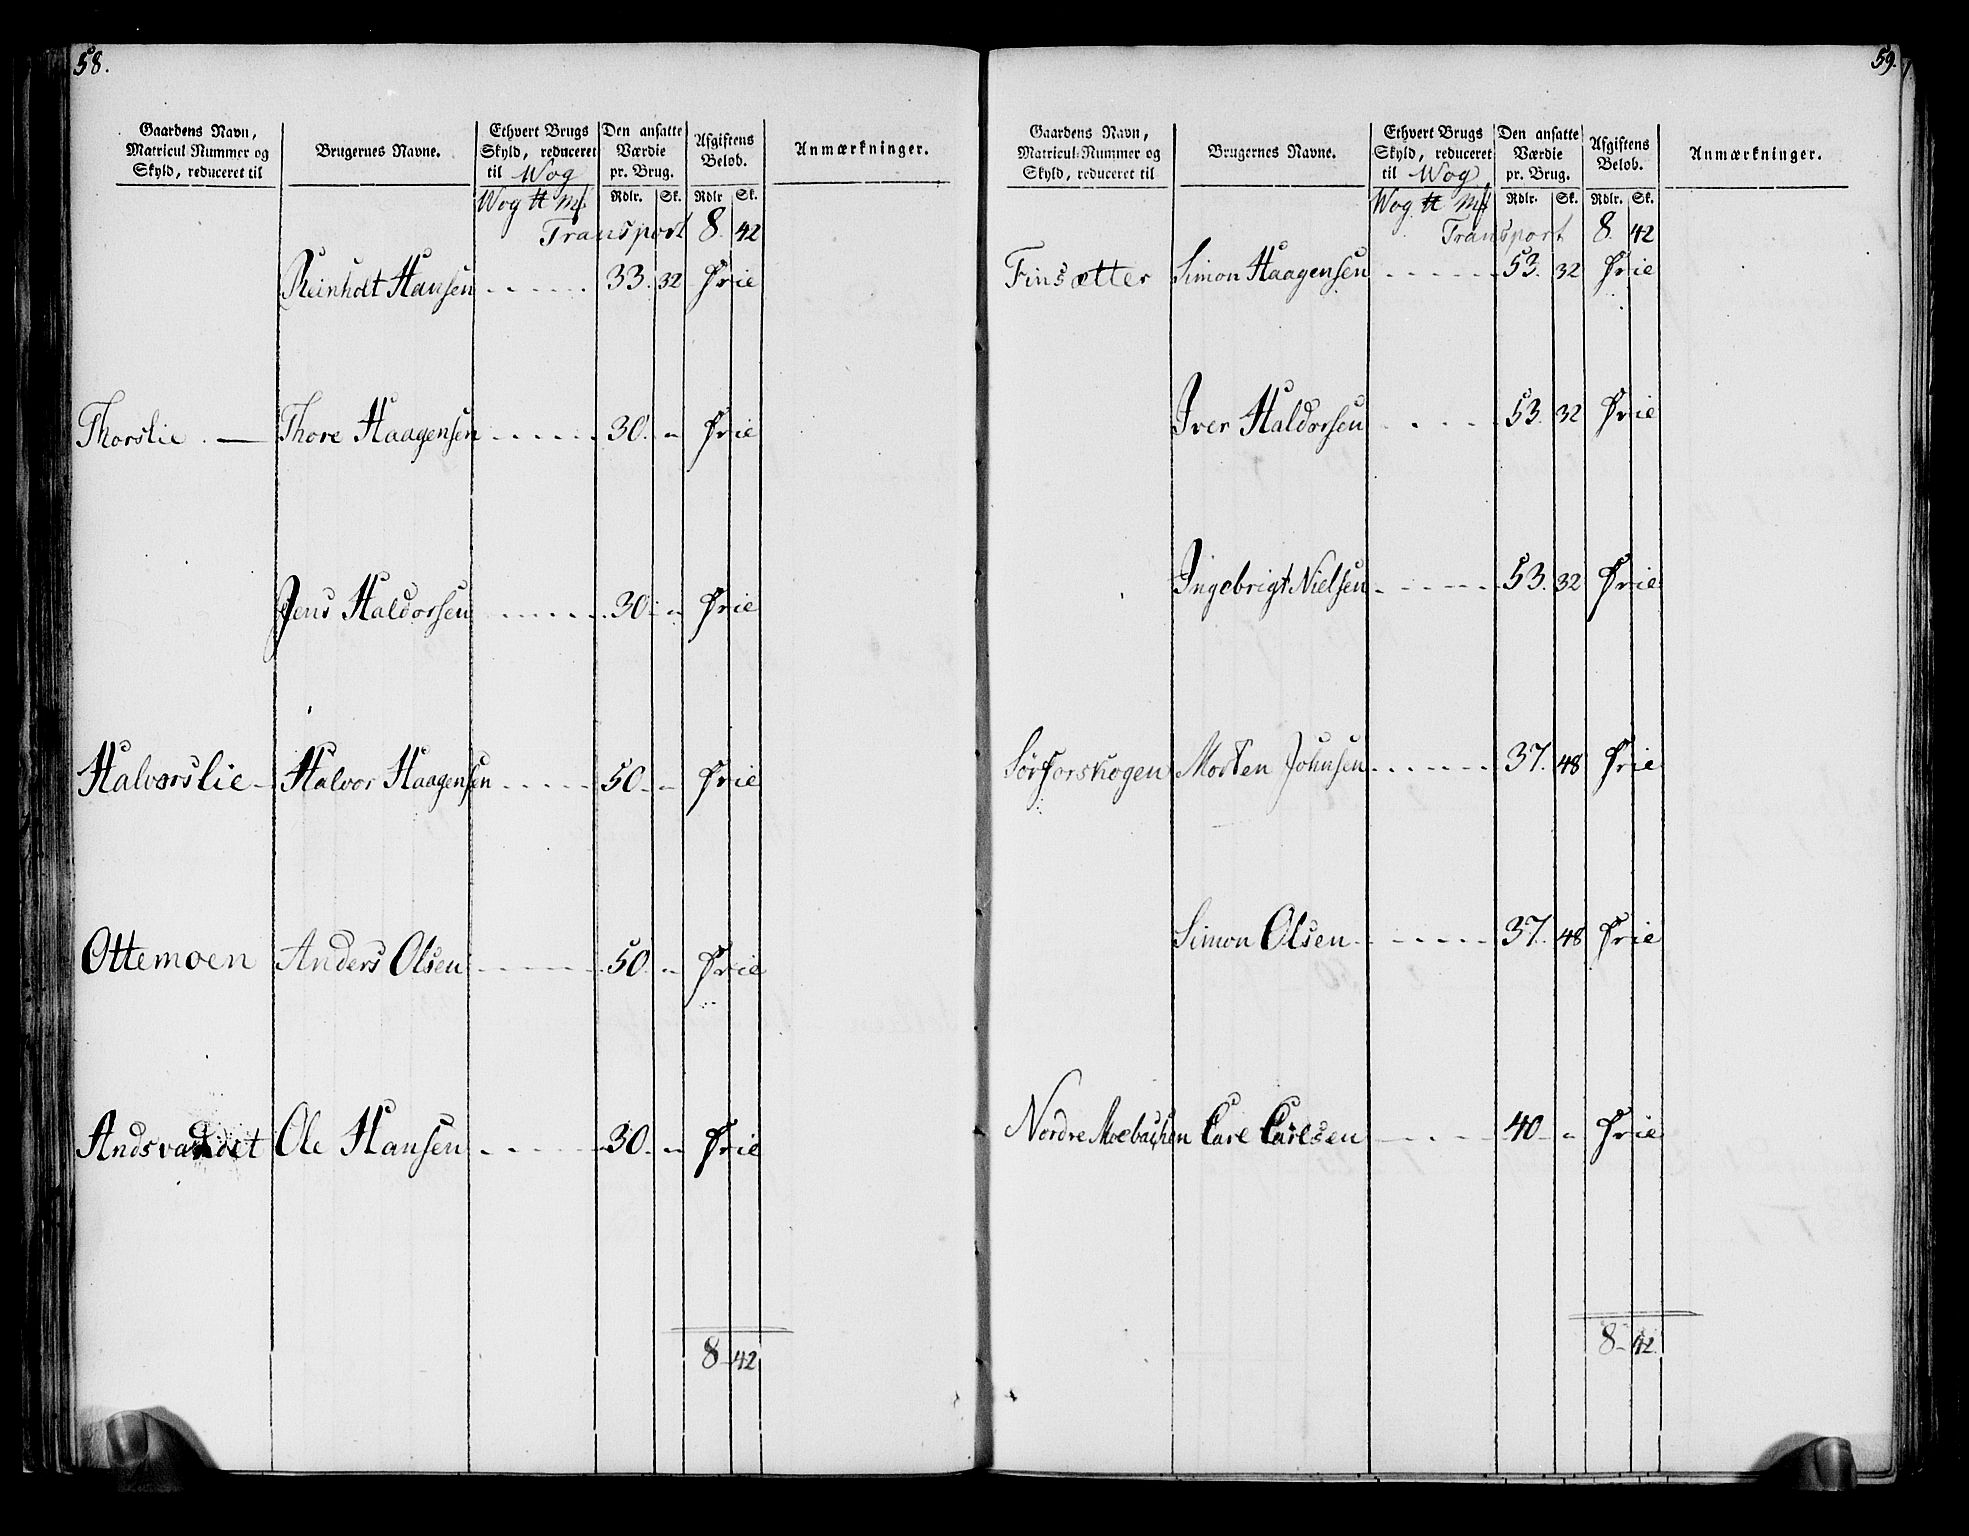 58.
Gaardens Navn, Matricul Nummer og Skyld, reduceret til
Brugernes Navne.
Ethvert Brugs Skyld, reduceret til Wog
Den ansatte Værdie pr. Brug.
Afgiftens Belob.
Anmærkninger.
Wog ℔ Mk Rdlr. Sk. Rdlr Sk.
Transport 8. 42
Reinholt Hansen - - - - - 33. 32 Frie
Thorslie. — Thore Haagensen - - - - - 30. - Frie
Jens Haldorsen - - - - - 30 - - Frie
Halvorslie - Halvor Haagensen - - - - - 50 - - Frie
Ottemoen Anders Olsen - - - - - 50. - Frie
Andsvandet Ole Hansen - - - - - 30 - - Frie
8 - 42
59.
Gaardens Navn, Matricul-Nummer og Skyld, reduceret til
Brugernes Navne.
Ethvert Brugs Skyld, reduceret til Wog
Den ansatte Værdie pr. Brug.
Afgiftens Belob.
Anmærkninger.
Wog. ℔ Mk Rdlr. Sk. Rdlr. Sk.
Transport 8. 42
Finsætter Simon Haagensen - - - - - 53. 32 Frie
Iver Haldorsen - - - - 53. 32 Frie
Ingebrigt Nielsen - - - - - 53. 32 Frie
Sørforskogen Morten Johnsen - - - - - 37. 48 Frie
Simon Olsen - - - - - 37. 48 Frie
Nordre Moebakken Carl Carlsen - - - - 40 - - Frie
8 - 42.